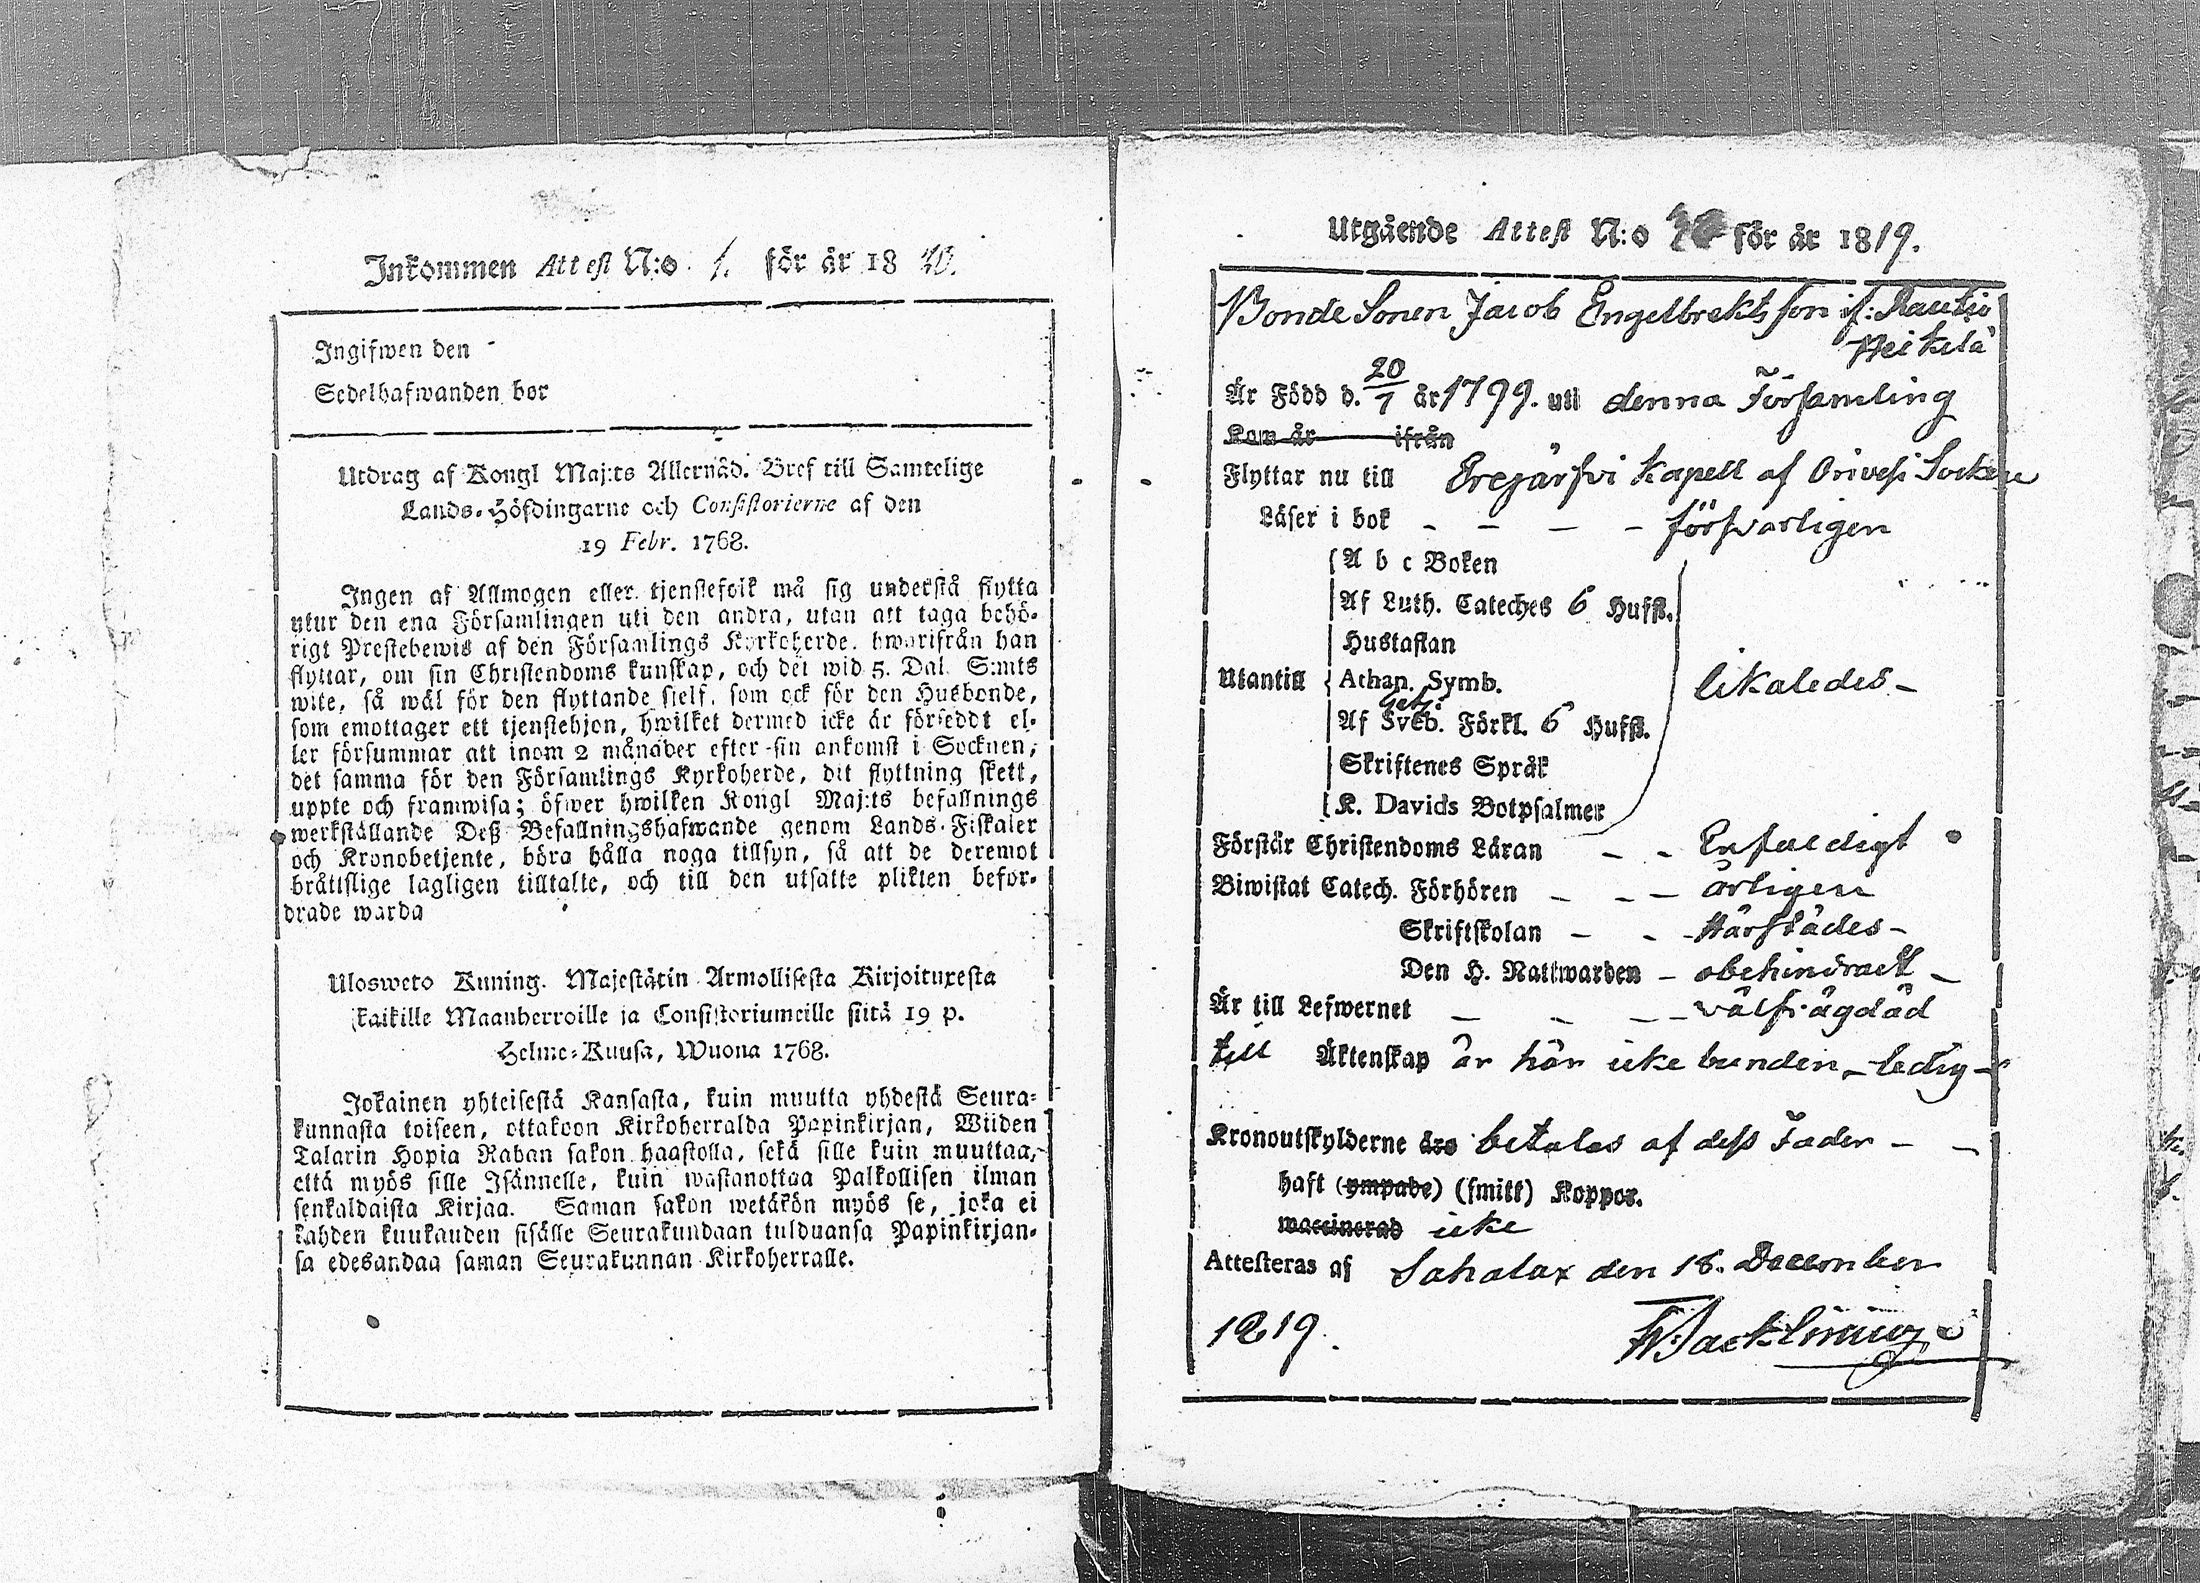 Inkommen Attest N:o 1. för år 18
Ingifwen den
Sedelhafwanden bor
Utdrag af Kongl Maj:ts Allernåd. Bref till Samtelige
Lands-Höfdingarne och Consistorierne af den
19 Febr. 1768.
Ingen af Allmogen eller tjenstefolk må sig understå flytta
utur den ena Församlingen uti den andra, utan att taga behö-
rigt Prestebewis af den Församlings Kyrkoherde, hwarifrån han
flyttar, om sin Christendoms kunskap, och det wid 5. Dal. S:mts
wite, så wäl för den flyttande sjelf, som ock för den Husbonde,
som emottager ett tjenstehjon, hwilket dermed icke är förseddt el-
ler försummar att inom 2 månader efter sin ankomst i Socknen,
det samma för den Församlings Kyrkoherde, dit flyttning skett,
uppte och framwisa; öfwer hwilken Kongl Maj:ts befallnings
werkställande Deß Befallningshafwande genom Lands-Fiskaler
och Kronobetjente, böra hålla noga tillsyn, så att de deremot
bråttslige lagligen tilltalte, och till den utsatte plikten befor-
drade warda
Ulosweto Kuning. Majestätin Armollisesta Kirjoituxesta
kaikille Maanherroille ja Consistoriumeille siitä 19 p.
Helme-Kuusa, Wuona 1768.
Jokainen yhteisestä Kansasta, kuin muutta yhdestä Seura-
kunnasta toiseen, ottakoon Kirkoherralda Papinkirjan, Wiiden
Talarin Hopia Rahan sakon haastolla, sekä sille kuin muuttaa,
että myös sille Isännelle, kuin wastanottaa Palkollisen ilman
senkaldaista Kirjaa. Saman sakon wetäkön myös se, joka ei
kahden kuukauden sisälle Seurakundaan tulduansa Papinkirjan-
sa edesandaa saman Seurakunnan Kirkoherralle.
Utgående Attest N:o för år 1819.
Bonde Sonen Jacob Engelbrekts son if: Rautio
Heikilä
Är Född d. 20/7 år 1799. uti denna Församling
Kom år ifrån
Flyttar nu till Erejärfvi Kapell af Orivesi Socken
Läser i bok - - - - försvarligen
A b c Boken
Af Luth. Cateches 6 Hufst.
Hustaflan
Utantill Athan. Symb. likaledes -
Af Sveb. Förkl. 6 Hufst.
Skriftenes Språk
K. Davids Botpsalmer
Förstår Christendoms Läran - - Enfaldigt
Biwistat Catech. Förhören - - - årligen
Skriftskolan - - - Härstädes -
Den H. Nattwarden - obehindradt -
Är till Lefwernet - - - - välfrägdad
till Äktenskap är här icke bunden - ledig -
Kronoutskylderne äro betalas af dess Fader - -
haft (ympade) (smitt) Koppor.
waccinerad icke
Attesteras af Sahalax den 18. December
1819. Wacklinius